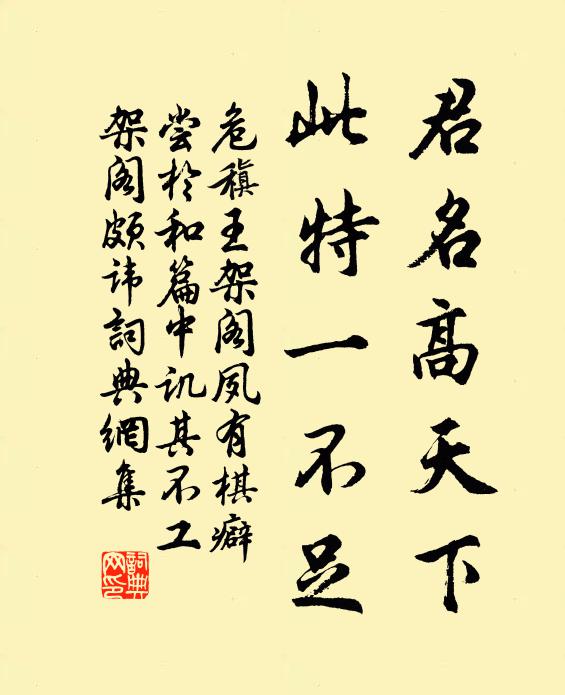 君名高天下
此特一不足
危稹王架阁夙有棋癖
尝於和篇中讥其不工
架阁颇讳詞典網集
詞典網印